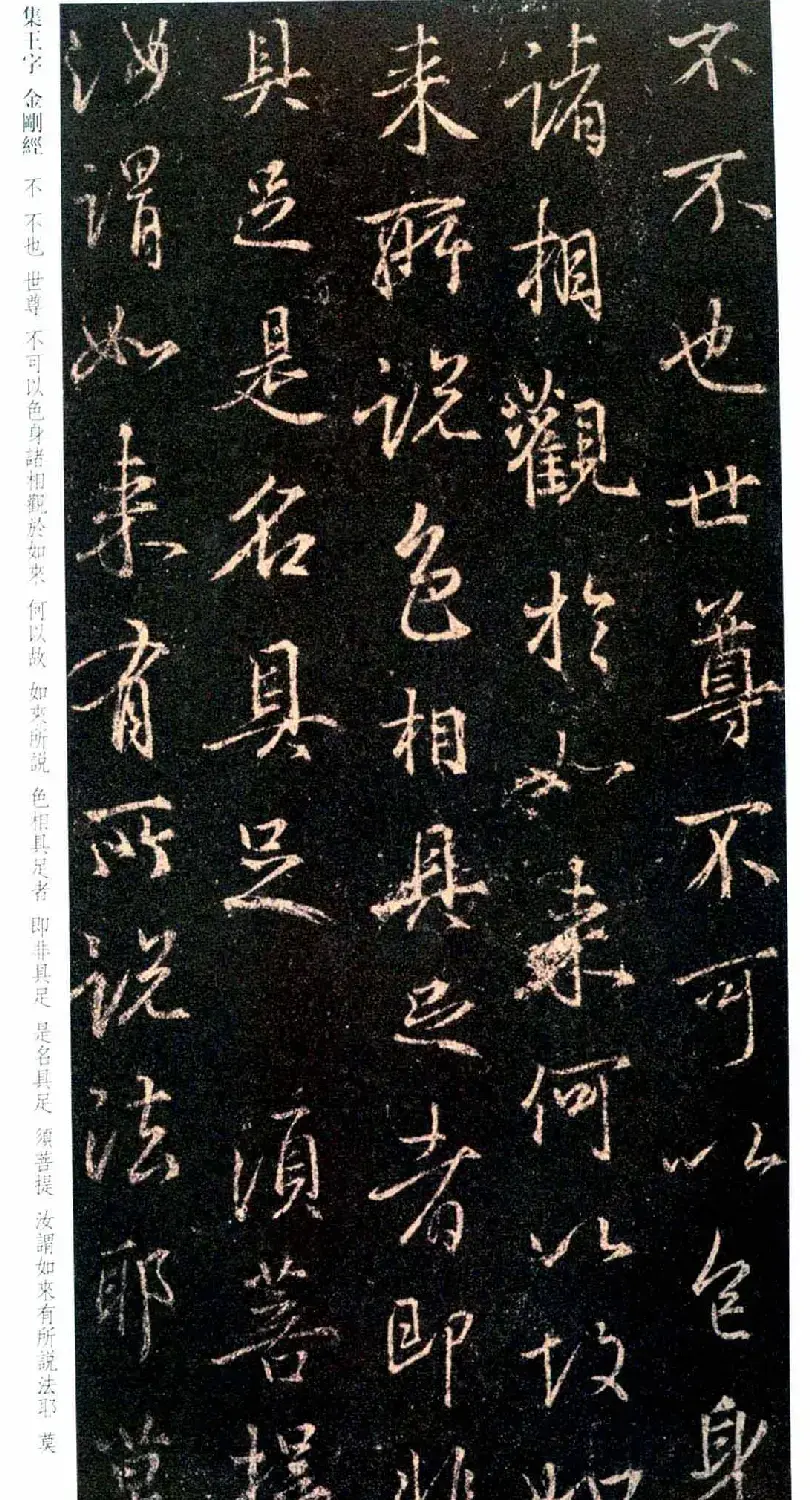 不不也世尊不可以色身
諸相觀於如来何以故如
来所説色相具足者即非
具足是名具足 須菩提
汝謂如来有所説法耶莫
集王字 金剛經 不 不也 世尊 不可以色身諸相觀於如來 何以故 如來所説 色相具足者 即非具足 是名具足 須菩提 汝謂如來有所説法耶 莫